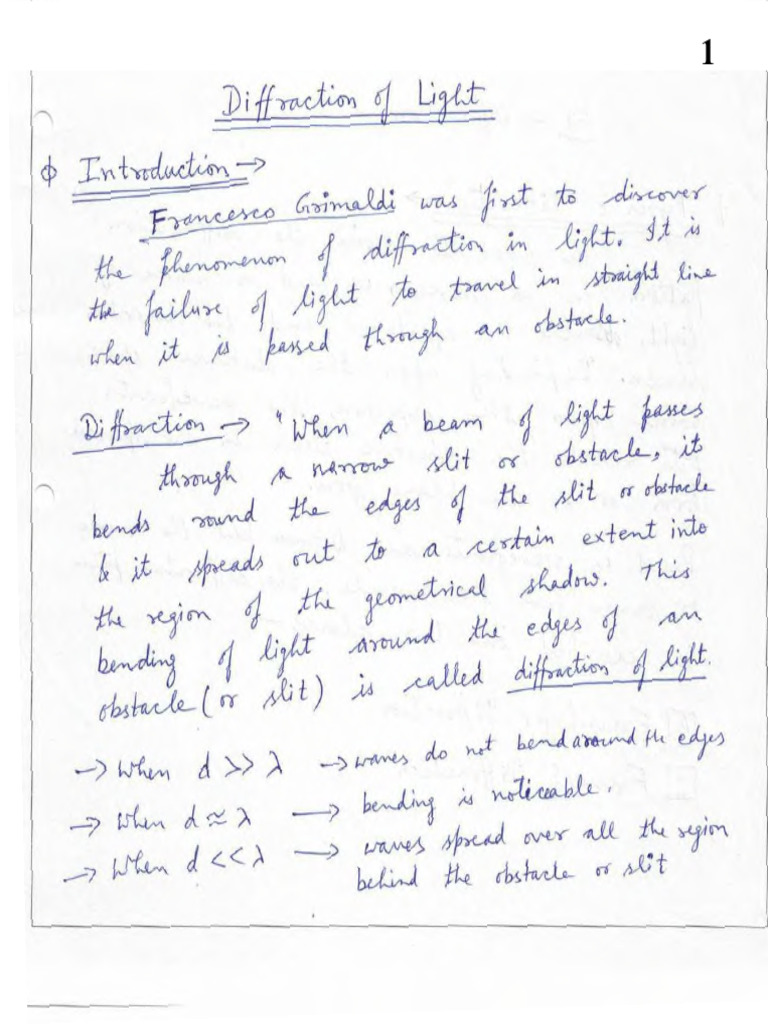 1
Diffraction of Light
ϕ Introduction →
Francesco Grimaldi was first to discover
the phenomenon of diffraction in light. It is
the failure of light to travel in straight line
when it is passed through an obstacle.
Diffraction → "When a beam of light passes
through a narrow slit or obstacle, it
bends round the edges of the slit or obstacle
& it spreads out to a certain extent into
the region of the geometrical shadow. This
bending of light around the edges of an
obstacle (or slit) is called diffraction of light.
→ When d >> λ → waves do not bend around the edges
→ When d ≈ λ → bending is noticeable.
→ When d << λ → waves spread over all the region
behind the obstacle or slit